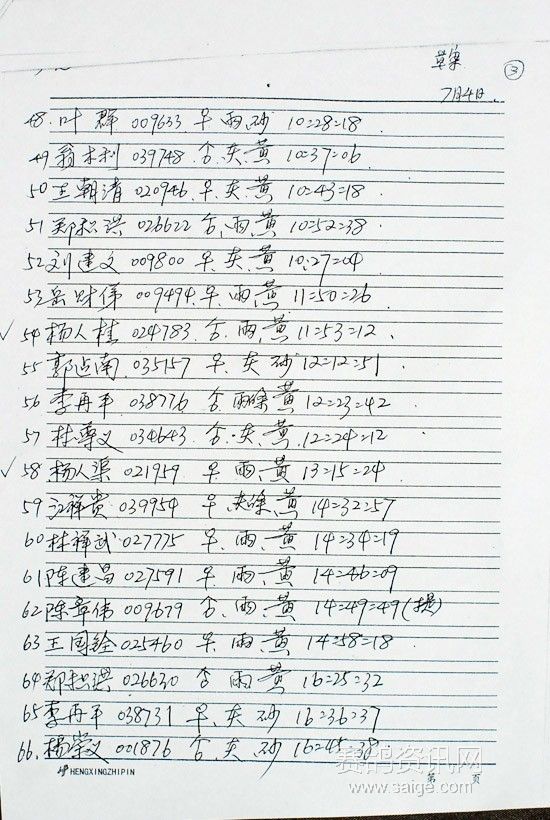 ③
7月4日.
48. 叶群 009633 早 雨.砂 10=28=18.
49 翁木利 039748 舍.灰.黄 10=37=06.
50 王朝清 020946. 早.灰.黄 10=43=18.
51 郑松洪 026622 舍.雨.黄 10=52=38.
52 刘建文 009800 早.灰.黄 10.27=04
53 岳财伟 009494. 早.雨.黄 11=50=26
√ 54 杨人桂 024783 舍.雨.黄 11=53=12.
55 郭运南 035157 早.灰.砂 12=12=51
56 李再平 038776 舍.雨绛.黄 12=23=42
57 林尊义 034643 舍.灰.黄 12=24=12
√ 58 杨人渠 021959 早.雨.黄 13=15=24
59 江祥贵 039954 早.灰绛.黄 14=32=57
60 林祥武 027775 早.雨.黄 14=34=19
61 陈建昌 027591 早.雨.黄 14=46=09
62 陈章伟 009679 舍.雨.黄 14=49=49
63 王国铨 025460 早.雨.黄 14=58=18.
64 郑松洪 026630 舍 雨.黄 16=25=32
65 李再平 038731 早.灰.砂 16=36=37
66. 杨崇义 001876 舍.灰.砂 16=45=38
HENGXINGZHIPIN
第 页
赛鸽资讯网
www.saige.com